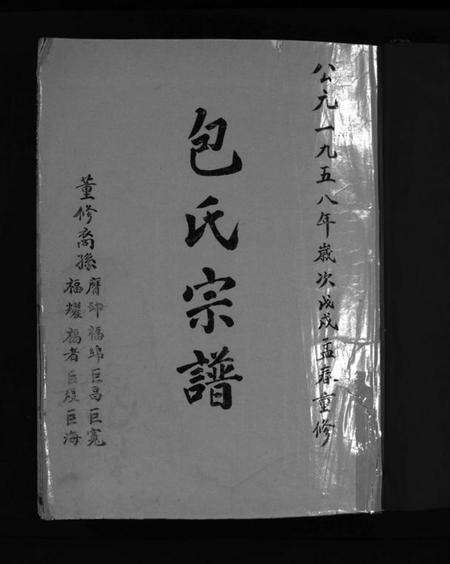 公元一九五八年歲次戊戌孟春重修
包氏宗譜
董修裔孫
磨印 福埠 巨昌 巨寬
福耀 福者 巨殷 巨海